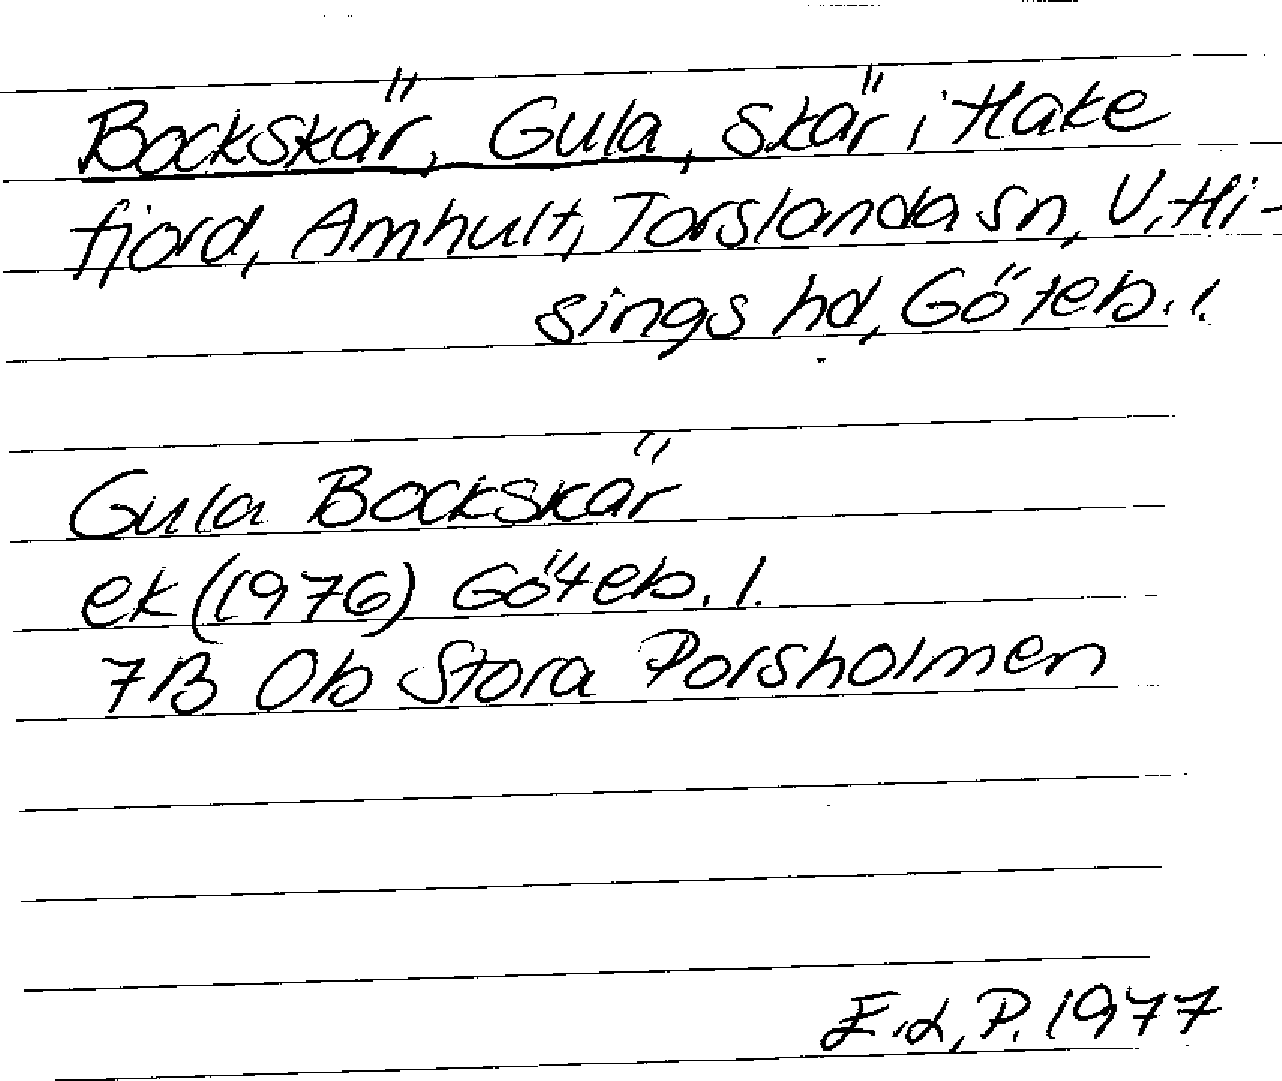 Bockskär, Gula, skär i Hake
fjord, Amhult, Torslanda sn, V. Hi-
sings hd, Göteb. l.
Gula Bockskär
ek (1976) Göteb. l.
7B 0b Stora Porsholmen
E.L.P. 1977